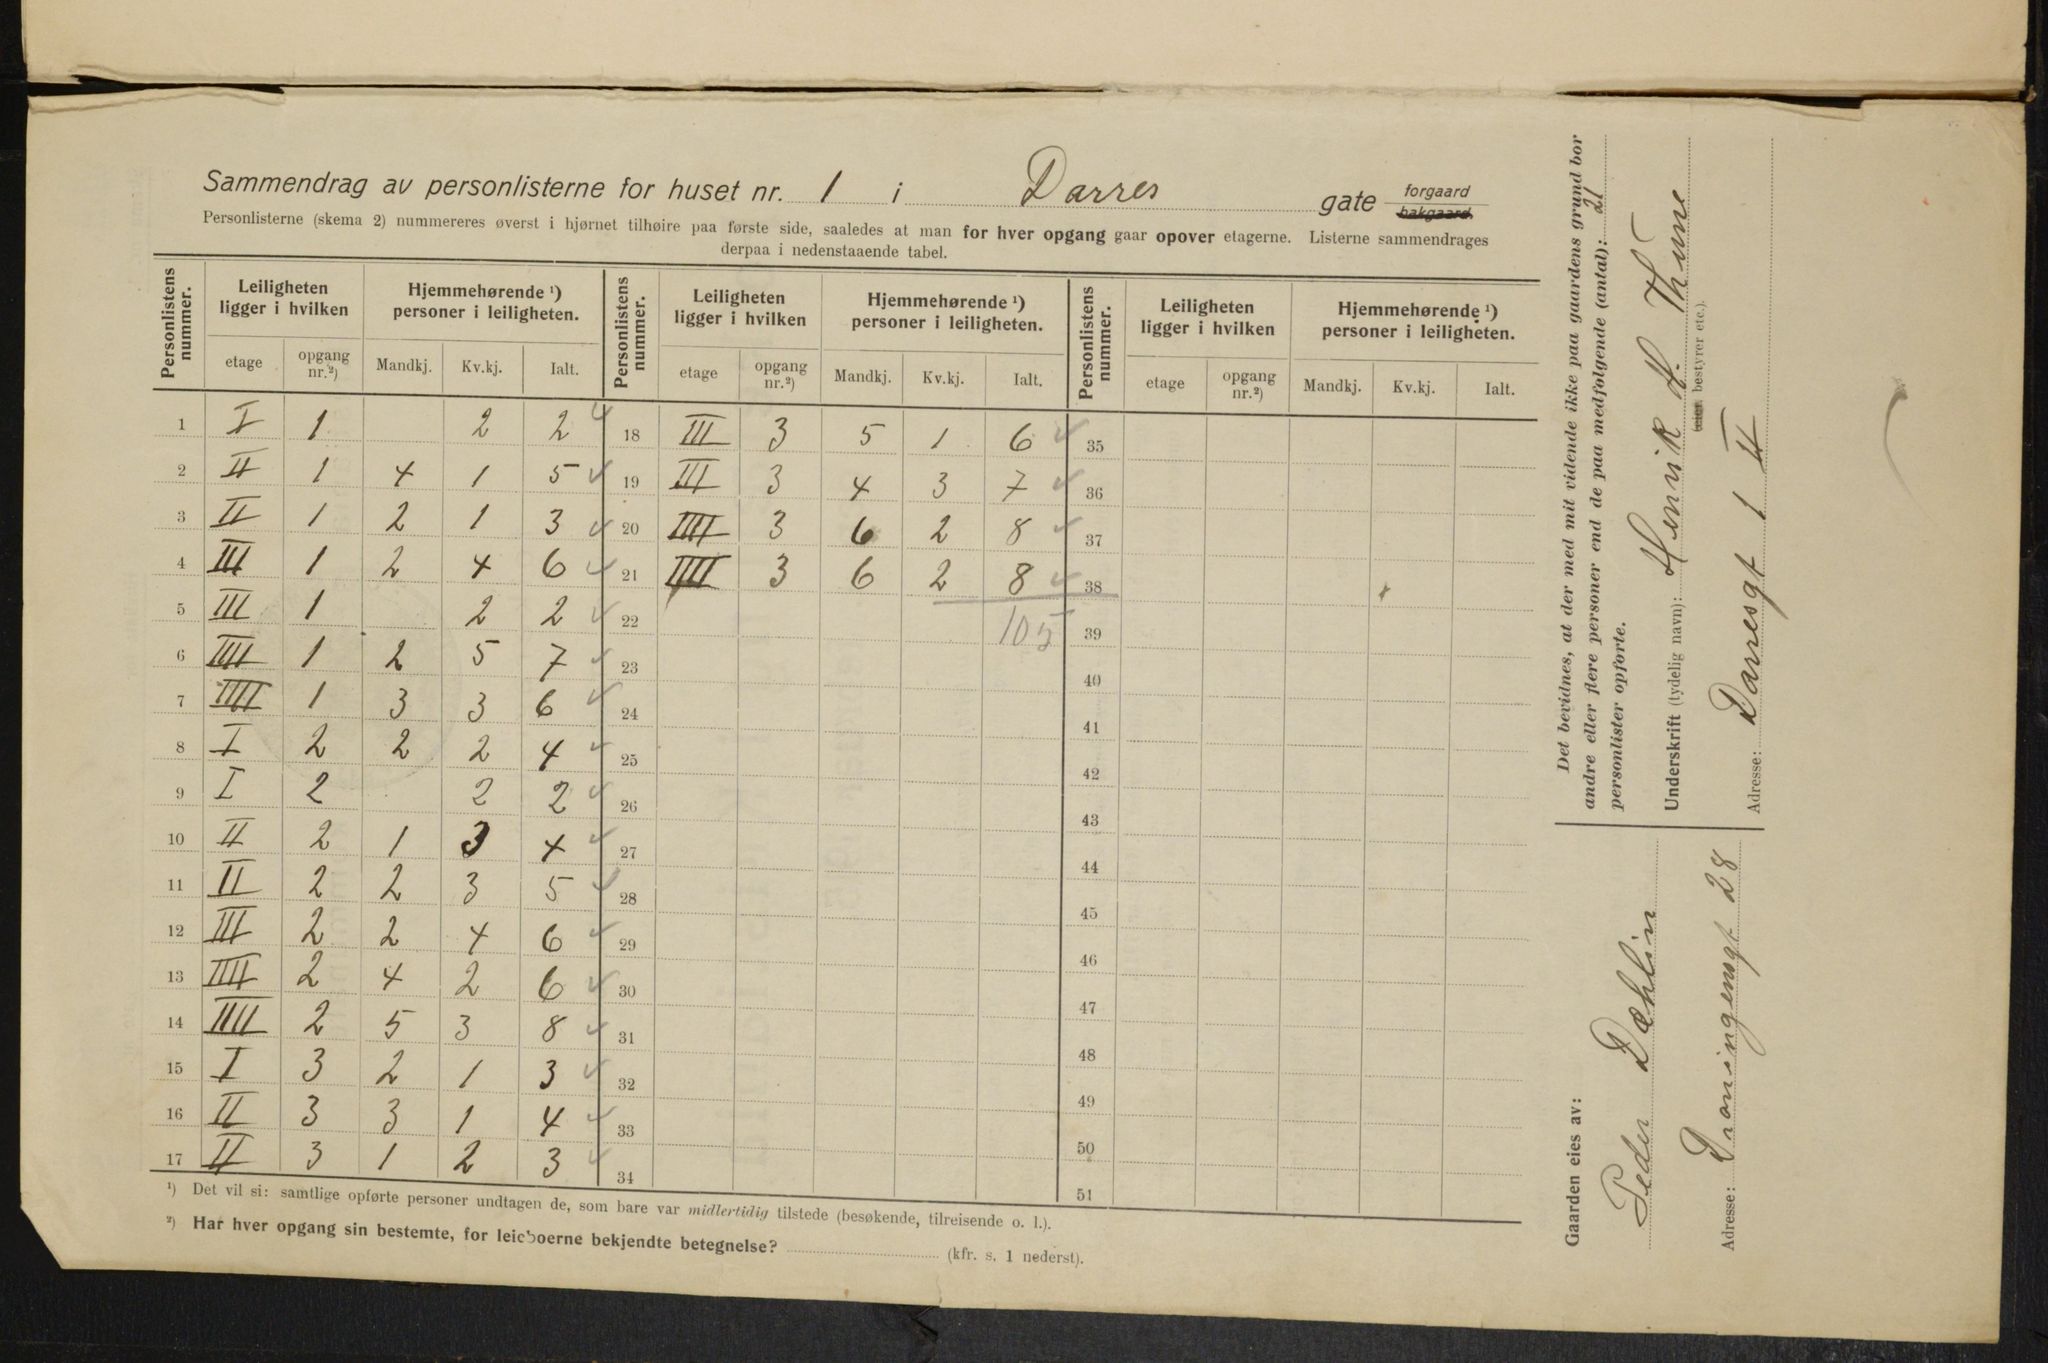 Sammendrag av personlisterne for huset nr. 1 i Darres gate forgaard bakgaard.
Personlisterne (skema 2) nummereres øverst i hjørnet tilhøire paa første side, saaledes at man for hver opgang gaar opover etagerne. Listerne sammendrages
derpaa i nedenstaaende tabel.
Personlistens nummer. Leiligheten ligger i hvilken Hjemmehørende ¹) personer i leiligheten. Personlistens nummer. Leiligheten ligger i hvilken Hjemmehørende ¹) personer i leiligheten. Personlistens nummer. Leiligheten ligger i hvilken Hjemmehørende ¹) personer i leiligheten.
etage opgang nr.²) Mandkj. Kv.kj. Ialt. etage opgang nr.²) Mandkj. Kv.kj. Ialt. etage opgang nr.²) Mandkj. Kv.kj. Ialt.
1 I 1 2 2 18 III 3 5 1 6 35
2 II 1 4 1 5 19 III 3 4 3 7 36
3 II 1 2 1 3 20 IIII 3 6 2 8 37
4 III 1 2 4 6 21 IIII 3 6 2 8 38
5 III 1 2 2 22 105 39
6 IIII 1 2 5 7 23 40
7 IIII 1 3 3 6 24 41
8 I 2 2 2 4 25 42
9 I 2 2 2 26 43
10 II 2 1 3 4 27 44
11 II 2 2 3 5 28 45
12 III 2 2 4 6 29 46
13 IIII 2 4 2 6 30 47
14 IIII 2 5 3 8 31 48
15 I 3 2 1 3 32 49
16 II 3 3 1 4 33 50
17 II 3 1 2 3 34 51
¹) Det vil si: samtlige opførte personer undtagen de, som bare var midlertidig tilstede (besøkende, tilreisende o. l.).
²) Har hver opgang sin bestemte, for leieboerne bekjendte betegnelse? (kfr. s. 1 nederst).
Det bevidnes, at der med mit vidende ikke paa gaardens grund bor
andre eller flere personer end de paa medfølgende (antal): 21
personlister opførte.
Underskrift (tydelig navn): Henrik H. Thune
eier, bestyrer etc.).
Adresse: Darresgt 1 II
Gaarden eies av:
Peder Dæhlin
Adresse: 28